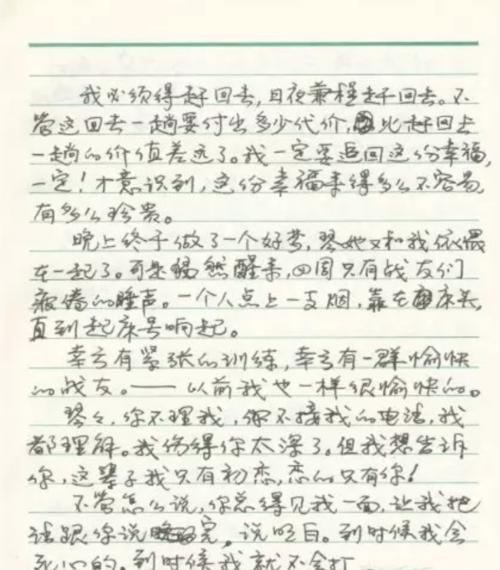 我必须得赶回去，日夜兼程赶回去。不
管这回去一趟要付出多少代价，比赶回去
一趟的价值差远了。我一定要追回这份幸福，
一定！才意识到，这份幸福来得多么不容易，
有多么珍贵。
晚上终于做了一个好梦，琴她又和我依偎
在一起了。可是猛然醒来，四周只有战友们
疲倦的睡声。一个人点上一支烟，靠在床头，
直到起床号响起。
幸亏有紧张的训练，幸亏有一群愉快
的战友。——以前我也一样很愉快的。
琴琴，你不理我，你不接我的电话，我
都理解。我伤得你太深了。但我想告诉
你，这辈子我只有初恋，恋的只有你！
不管怎么说，你总得见我一面，让我把
话跟你说完，说明白。到时候我会
死心的。到时候我就不会打